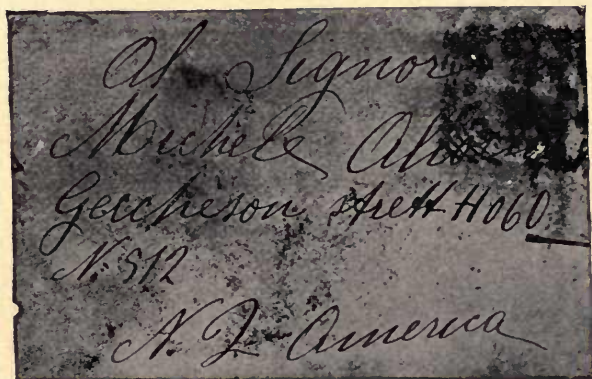 Al Signor
Michele
Geccheson strett H060
N. 512
N. J America